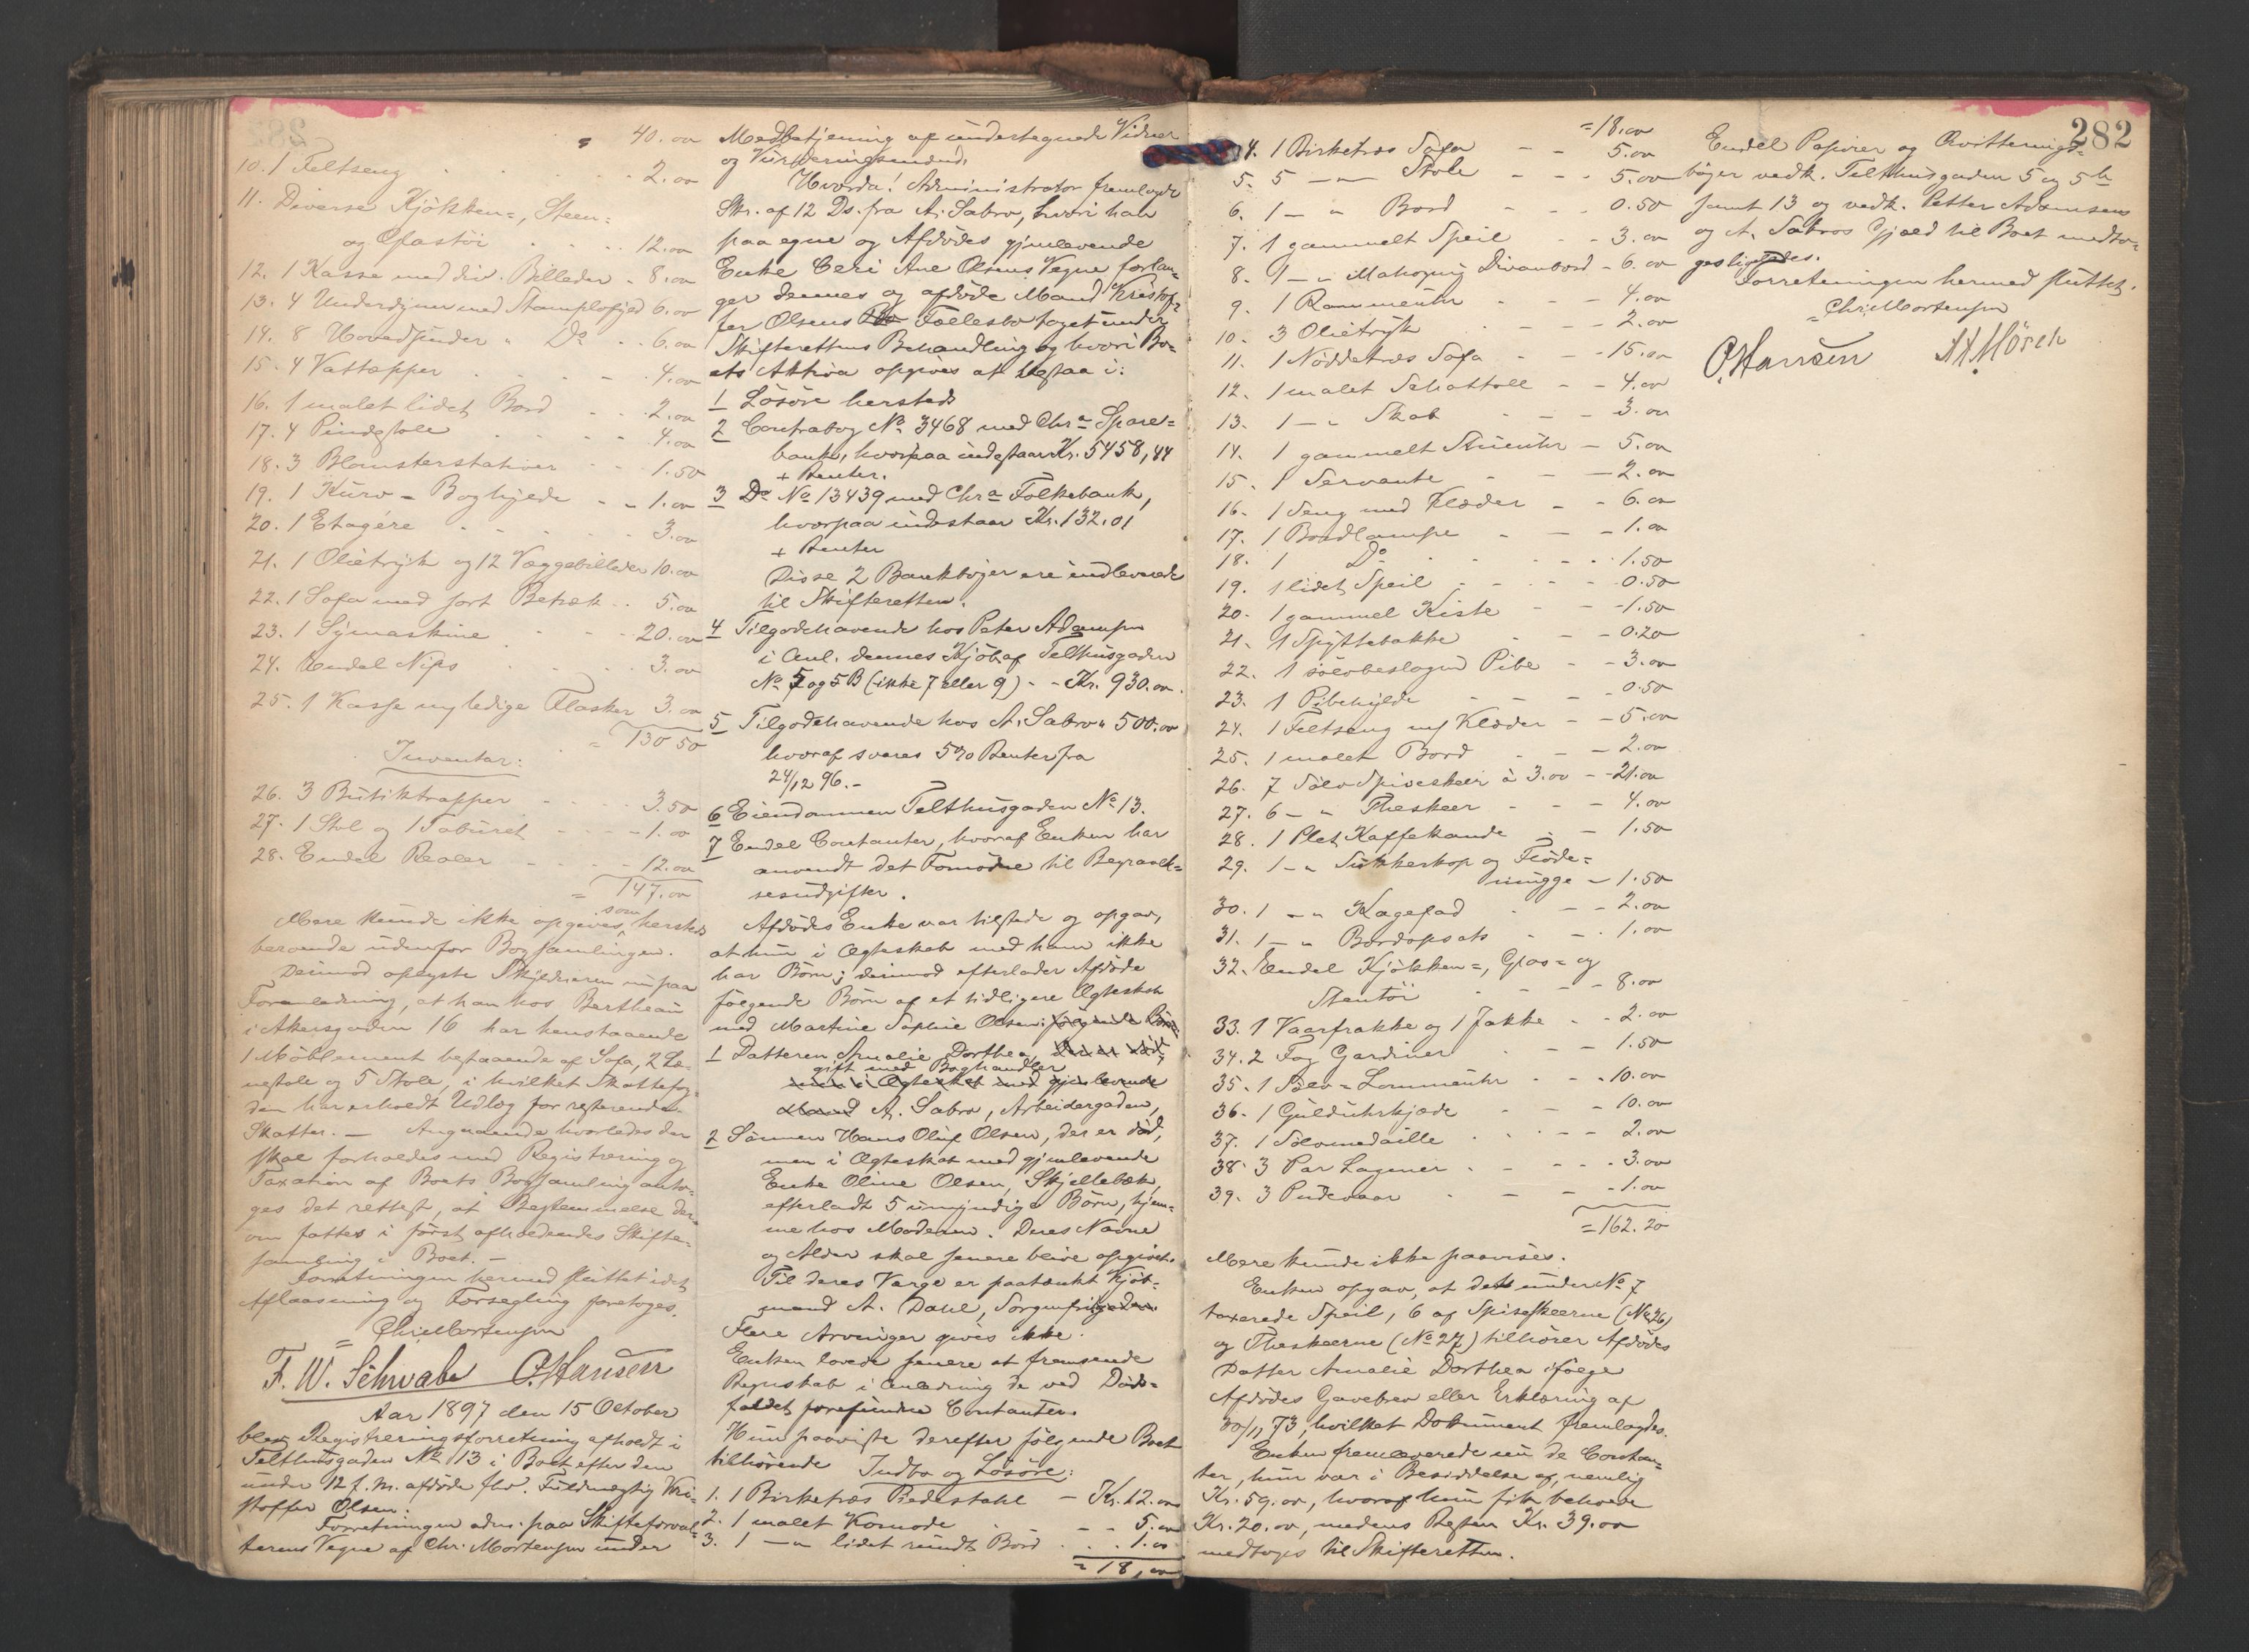 40.00
10. 1 Feltseng 2.00
11. Diverse Kjökken=, Steen=
og Glastöi 12.00
12. 1 Kasse med div. Billeder 8.00
13. 4 Underdyner med Stampløfjed 6.00
14. 8 Hovedpuder " Do 6.00
15. 4 Vattæpper 4.00
16. 1 malet lidet Bord 2.00
17. 4 Pindestole 4.00
18. 3 Blomsterstativer 1.50
19. 1 Kurv- Boghylde 1.00
20. 1 Etagére 3.00
21. 1 Olietryk og 12 Væggebilleder 10.00
22. 1 Sofa med sort Betræk 5.00
23. 1 Symaskine 20.00
24. Endel Nips 3.00
25. 1 Kasse m/ ledige Flasker 3.00
= 130 50
Inventar:
26. 3 Butiktrapper 3.50
27. 1 Stol og 1 Taburet 1.00
28. Endel Reoler 12.00
= 147.00
Mere kunde ikke opgives som hersteds
beroende udenfor Bogsamlingen.
Derimod oplyste Skyldneren nu paa
Foranledning, at han hos Bertheau
i Akersgaden 16 har henstaaende
1 Möblement bestaaende af Sofa, 2 Læ-
nestole og 5 Stole, i hvilket Skattefog-
den har erholdt Udlæg for resterende
Skatter. — Angaaende hvorledes der
skal forholdes med Registrering og
Taxation af Boets Bogsamling anto-
ges det rettest, at Bestemmelse der-
om fattes i först afholdendes Skifte-
samling i Boet. —
Forretningen hermed sluttet idet
Aflaasning og Forsegling foretoges.
Chr. Mortensen
F. W. Schwabe O. Hansen
Aar 1897 den 15 October
blev Registreringsforretning afholdt i
Telthusgaden No 13 i Boet efter den
under 12 f. M. afdöde fhv. Fuldmægtig Kri-
stoffer Olsen.
Forretningen adm. paa Skifteforval-
terens Vegne af Chr. Mortensen under
Medbetjening af undertegnede Vidner
og Vurderingsmænd.
Hvorda! Administrator fremlagde
Skr. af 12 Ds. fra A. Sabro, hvori han
paa egne og Afdödes gjenlevende
Enke Beri Ane Olsens Vegne forlan-
ger dennes og afdöde Mand Kristof-
fer Olsens Fællesbo taget under
Skifterettens Behandling og hvori Bo-
ets Aktiva opgives at bestaa i:
1 Lösöre hersteds
2 Contrabog No 3468 med Chra Spare=
bank, hvorpaa indestaar Kr. 5458,44
+ Renter.
3 Do No 13439 med Chra Folkebank,
hvorpaa indestaar Kr. 132.01
+ Renter
Disse 2 Bankböger ere indleverede
til Skifteretten.
4 Tilgodehavende hos Peter Adamsen
i Anl. dennes Kjöb af Telthusgaden
No 5 og 5B (ikke 7 eller 9) - - Kr. 930.00.
5 Tilgodehavende hos A. Sabro " 500.00
hvoraf svares 5% Renter fra
24/12 96.-
6 Eiendommen Telthusgaden No 13.
7 Endel Contanter, hvoraf Enken har
anvendt det Fornödne til Begravel=
sesudgifter.
Afdödes Enke var tilstede og opgav,
at hun i Ægteskab med ham ikke
har Börn; derimod efterlader Afdöde
fölgende Börn af et tidligere Ægteskab
med Martine Sophie Olsen: fölgende Börn:
1 Datteren Amalie Dorthea, der er död,
gift med Boghandler
men i Ægteskab med gjenlevende
Mand A. Sabro, Arbeidergaden,
2 Sönnen Hans Oluf Olsen, der er död,
men i Ægteskab med gjenlevende
Enke Oline Olsen, Skjellebæk,
efterladt 5 umyndige Börn, hjem-
me hos Moderen. Deres Navne
og Alder skal senere blive opgivet.
Til deres Værge er paatænkt Kjöb-
mand A. Dahl, Sorgenfrigaden.
Flere Arvinger gives ikke.
Enken lovede senere at fremsende
Regnskab i Anledning de ved Döds=
faldet forefundne Contanter.
Hun paaviste derefter fölgende Boet
tilhörende Indbo og Lösöre:
1. 1 Birketræs Redestahl - Kr. 12.00
2. 1 malet Komode - - 5.00
3. 1 — " lidet rundt Bord 1.00
= 18,00
282
= 18.00
4. 1 Birketræs Sofa - - 5.00
5. 5 — " — Stole - - - 5.00
6. 1 — " Bord - - - 0.50
7. 1 gammelt Speil - - 3.00
8. 1 — " Mahogny Divanbord - 6.00
9. 1 Rammeuhr - - - 4.00
10. 3 Olietryk - - - 2.00
11. 1 Nöddetræs Sofa - - 15.00
12. 1 malet Schattoll - - 4.00
13. 1 — " Skab - - - 3.00
14. 1 gammelt Stueuhr - 5.00
15. 1 Servante - - - 2.00
16. 1 Seng med Klæder - - 6.00
17. 1 Bordlampe - - - 1.00
18. 1 Do 1.50
19. 1 lidet Speil 0.50
20. 1 gammel Kiste - - 1.50
21. 1 Spyttebakke - - 0.20
22. 1 sölvbeslagen Pibe - - 3.00
23. 1 Pibehylde - - - 0.50
24. 1 Feltseng m/ Klæder - - 5.00
25. 1 malet Bord - - - 2.00
26. 7 Sölv Spiseskeer à 3.00 - - 21.00
27. 6 — " Theskeer - - - 4.00
28. 1 Plet Kaffekande - - 1.50
29. 1 — " Sukkerkop og Flöde=
mugge - 1.50
30. 1 — " Kagefad - - 2.00
31. 1 — " Bordopsats - - 1.00
32. Endel Kjökken=, Glas= og
Stentöi - - - 8.00
33. 1 Vaarfrakke og 1 Jakke - - 2.00
34. 2 Fag Gardiner - - - 1.50
35. 1 Sölv=Lommeuhr - - 10.00
36. 1 Gulduhrkjæde - - - 10.00
37. 1 Sölvmedaille - - 2.00
38. 3 Par Lagener - - - 3.00
39. 3 Pudevaar - - - 1.00
= 162.20
Mere kunde ikke paavises.
Enken opgav, at det under No 7
taxerede Speil, 6 af Spiseskeerne (No 26)
og Theskeerne (No 27) tilhörer Afdödes
Datter Amalie Dorthea ifölge
Afdödes Gavebrev eller Erklæring af
30/11 73, hvilket Dokument fremlagdes.
Enken fremleverede nu de Contan-
ter, hun var i Besiddelse af, nemlig
Kr. 59.00, hvoraf hun fik beholde
Kr. 20.00, medens Resten Kr. 39.00
medtoges til Skifteretten.
Endel Papirer og Qvitterings-
böger vedk. Telthusgaden 5 og 5b
samt 13 og vedk. Petter Adamsens
og A. Sabros Gjæld til Boet medto-
ges ligeledes.
Forretningen hermed sluttet.
Chr. Mortensen
O. Hansen A. Mörch